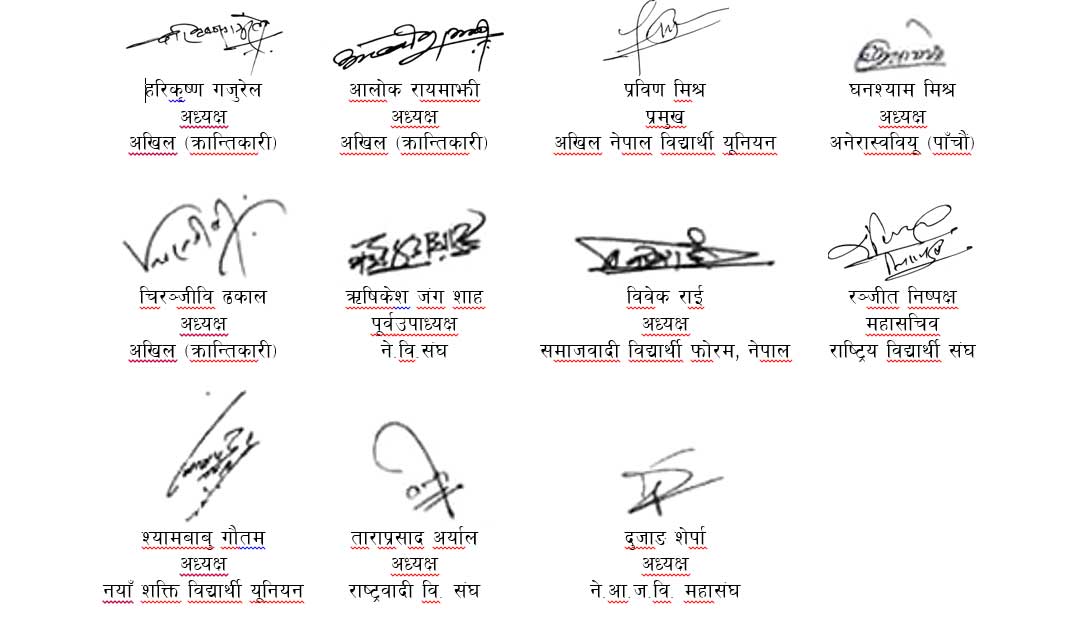 हरिकृष्ण गजुरेल आलोक रायमाझी प्रविण मिश्र घनश्याम मिश्र
अध्यक्ष अध्यक्ष प्रमुख अध्यक्ष
अखिल (क्रान्तिकारी) अखिल (क्रान्तिकारी) अखिल नेपाल विद्यार्थी यूनियन अनेरास्ववियू (पाँचौं)
चिरञ्जीवि ढकाल ऋषिकेश जंग शाह विवेक राई रञ्जीत निष्पक्ष
अध्यक्ष पूर्वउपाध्यक्ष अध्यक्ष महासचिव
अखिल (क्रान्तिकारी) ने.वि.संघ समाजवादी विद्यार्थी फोरम, नेपाल राष्ट्रिय विद्यार्थी संघ
श्यामबाबु गौतम ताराप्रसाद अर्याल दुजाङ शेर्पा
अध्यक्ष अध्यक्ष अध्यक्ष
नयाँ शक्ति विद्यार्थी यूनियन राष्ट्रवादी वि. संघ ने.आ.ज.वि. महासंघ